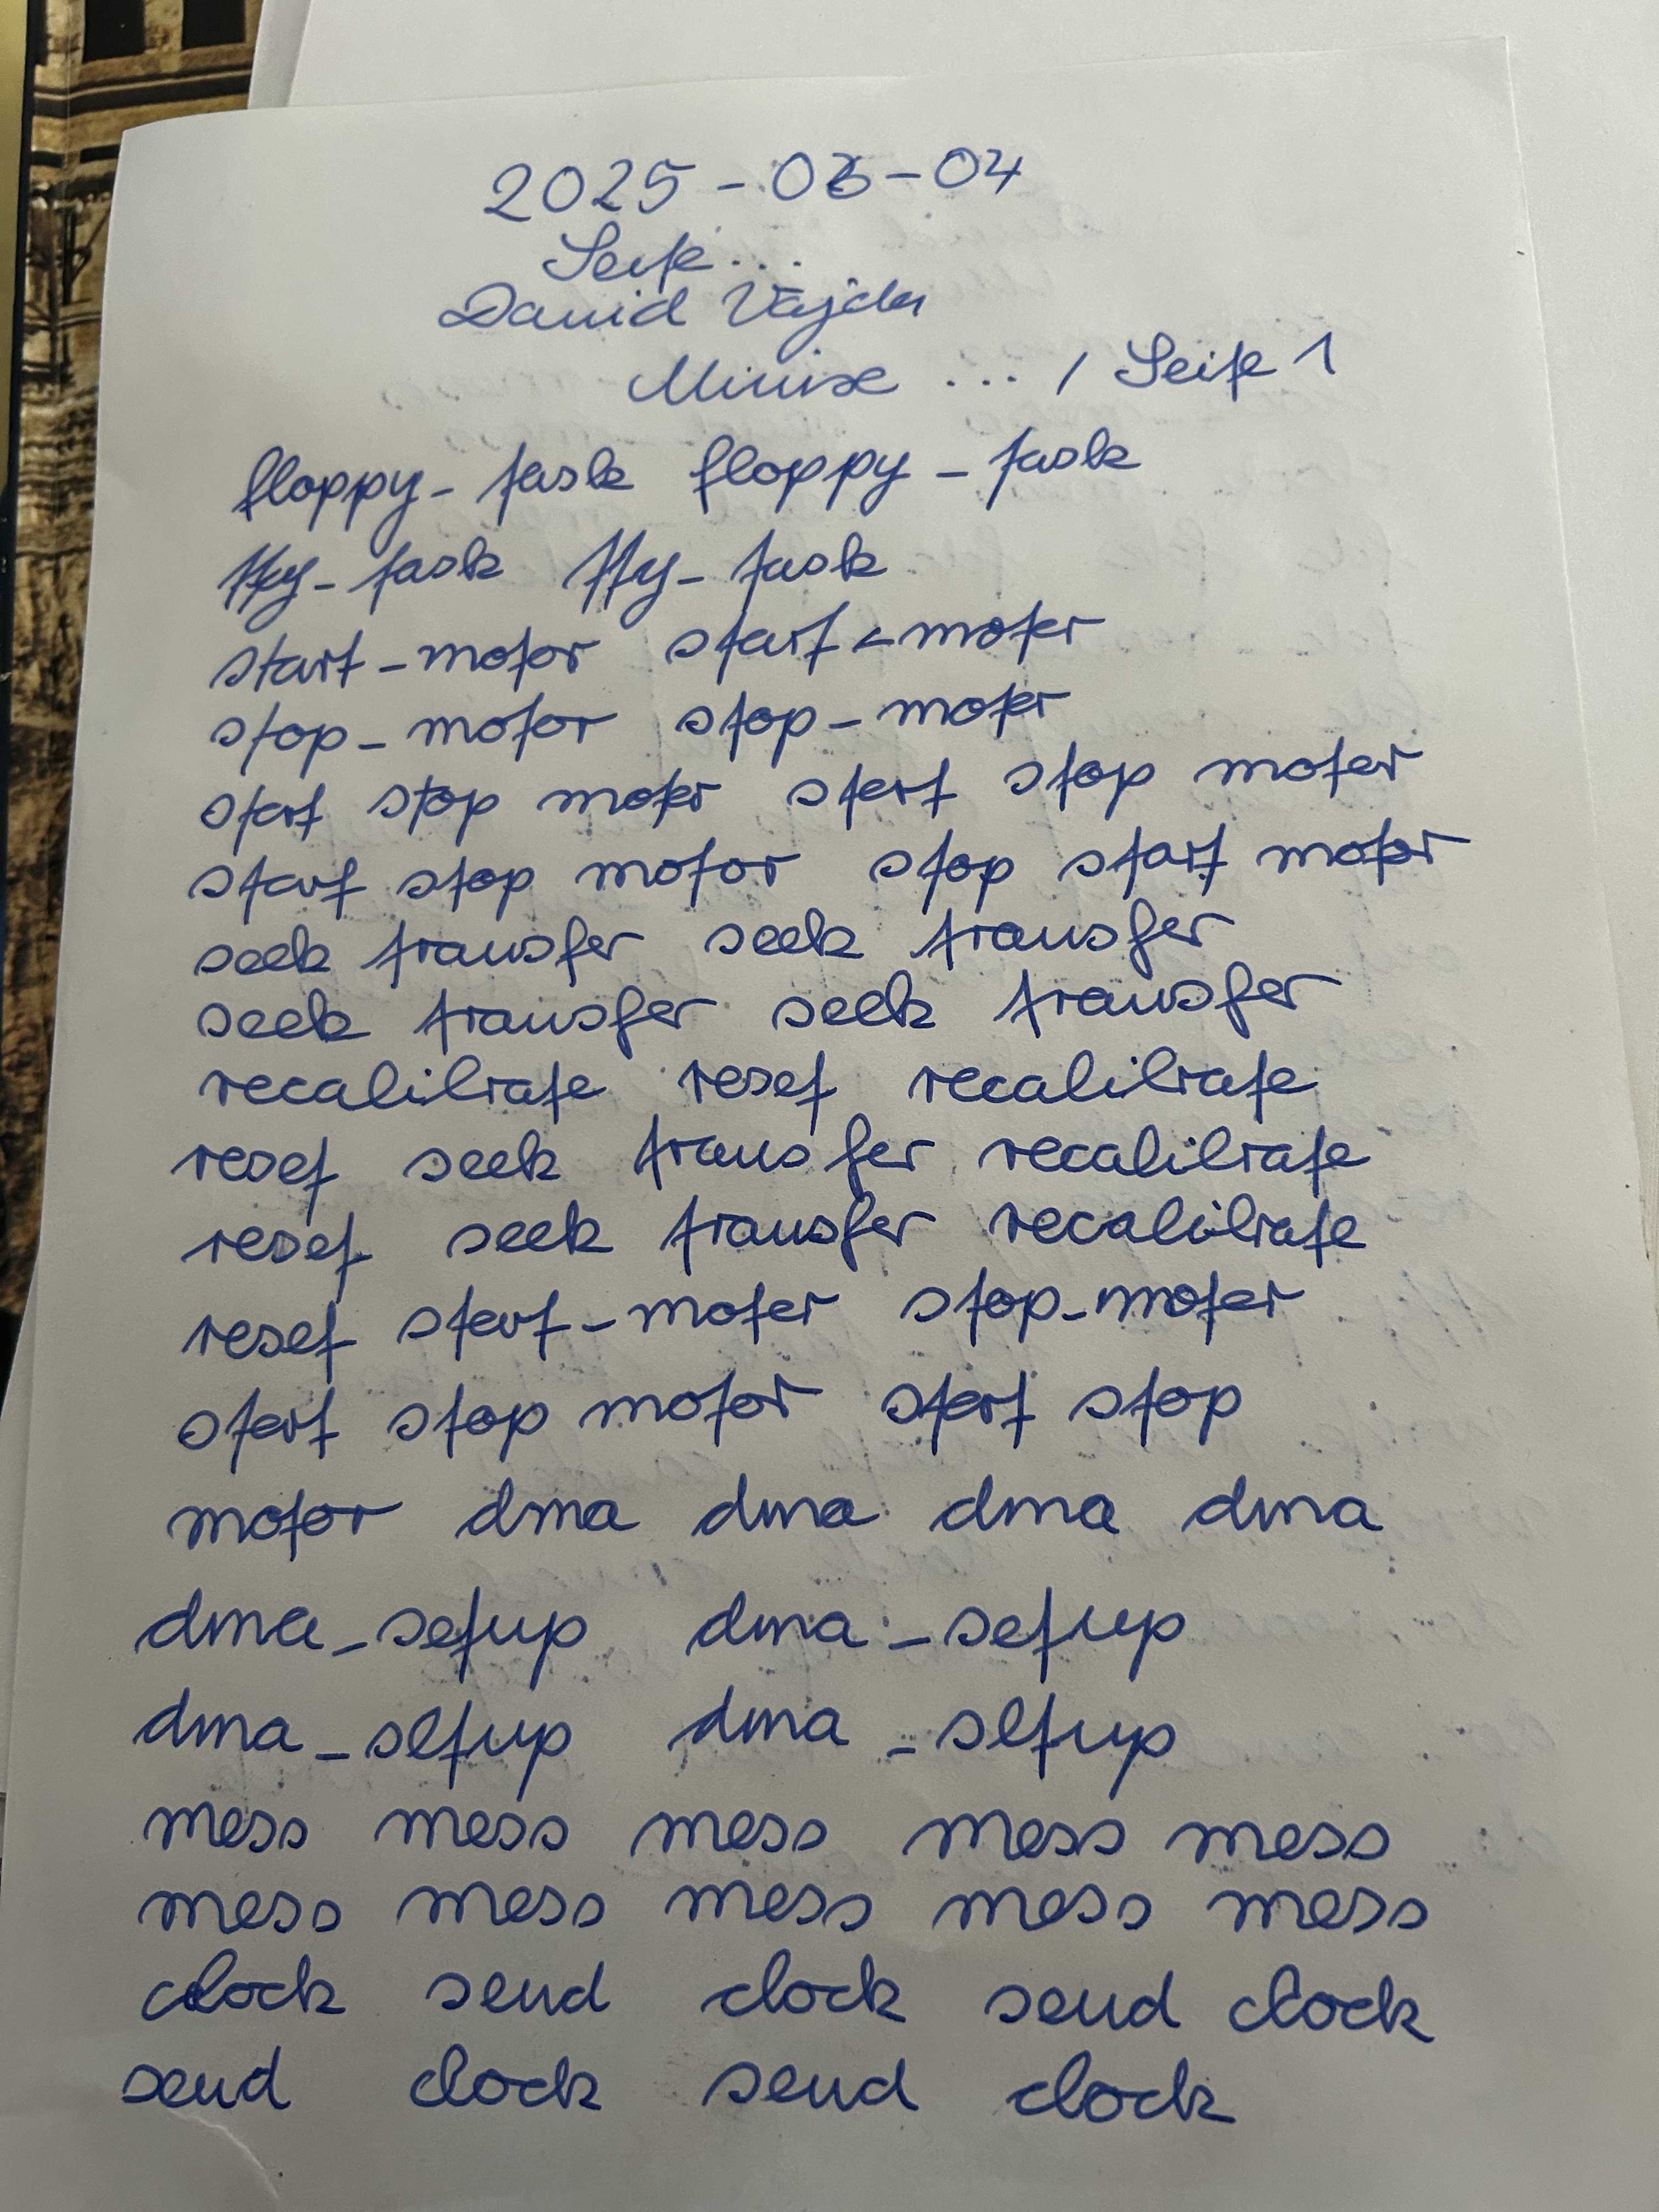 2025-03-04
Seite...
David Vajda
Minix ... / Seite 1
floppy_task floppy_task
tty_task tty_task
start_motor start_motor
stop_motor stop_motor
start stop motor start stop motor
start stop motor stop start motor
seek transfer seek transfer
seek transfer seek transfer
recalibrate reset recalibrate
reset seek transfer recalibrate
reset seek transfer recalibrate
reset start_motor stop_motor
start stop motor start stop
motor dma dma dma dma
dma_setup dma_setup
dma_setup dma_setup
mess mess mess mess mess
mess mess mess mess mess
clock send clock send clock
send clock send clock